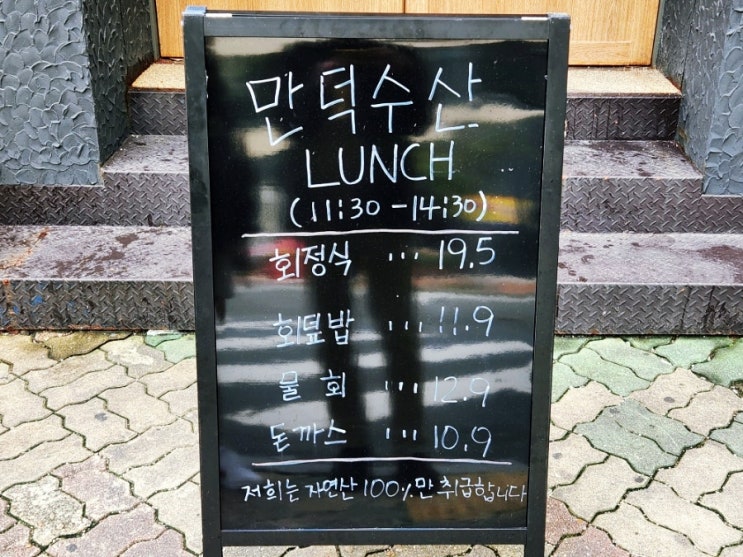 만덕수산
LUNCH
(11:30 - 14:30)
회정식 ... 19.5
회덮밥 ... 11.9
물회 ... 12.9
돈까스 ... 10.9
저희는 자연산 100%만 취급합니다